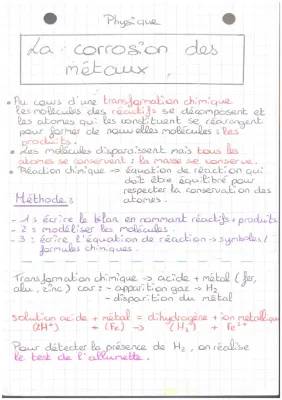 Physique
La corrosion des
métaux.
• Au cours d'une transformation chimique
les molécules des réactifs se décomposent et
les atomes qui les constituent se réarrangent
pour former de nouvelles molécules : les
produits.
• Les molécules disparaissent mais tous les
atomes se conservent : la masse se conserve.
• Réaction chimique → équation de réaction qui
doit être équilibré pour
respecter la conservation des
atomes.
Méthode :
- 1 : écrire le bilan en nommant réactifs + produits
- 2 : modéliser les molécules.
- 3 : écrire l'équation de réaction → symboles/
formules chimiques.
Transformation chimique → acide + métal (fer,
alu, zinc) car : - apparition gaz → H2
- disparition du métal
solution acide + métal = dihydrogène + ion métallique
(2H+) + (Fe) → (H2) + Fe2+
Pour détecter la présence de H2, on réalise
le test de l'allumette.